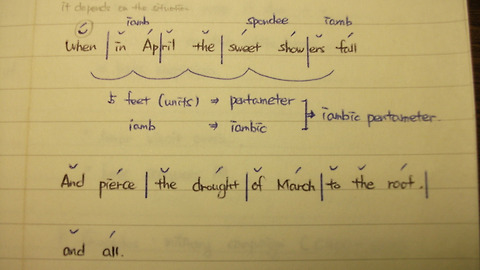 it depends on the situation
iamb spondee iamb
When | in Ap|ril the | sweet show|ers fall
5 feet (units) ⇒ pentameter
iamb ⇒ iambic
⇒ iambic pentameter
And pierce | the drought | of March | to the root. |
and all.